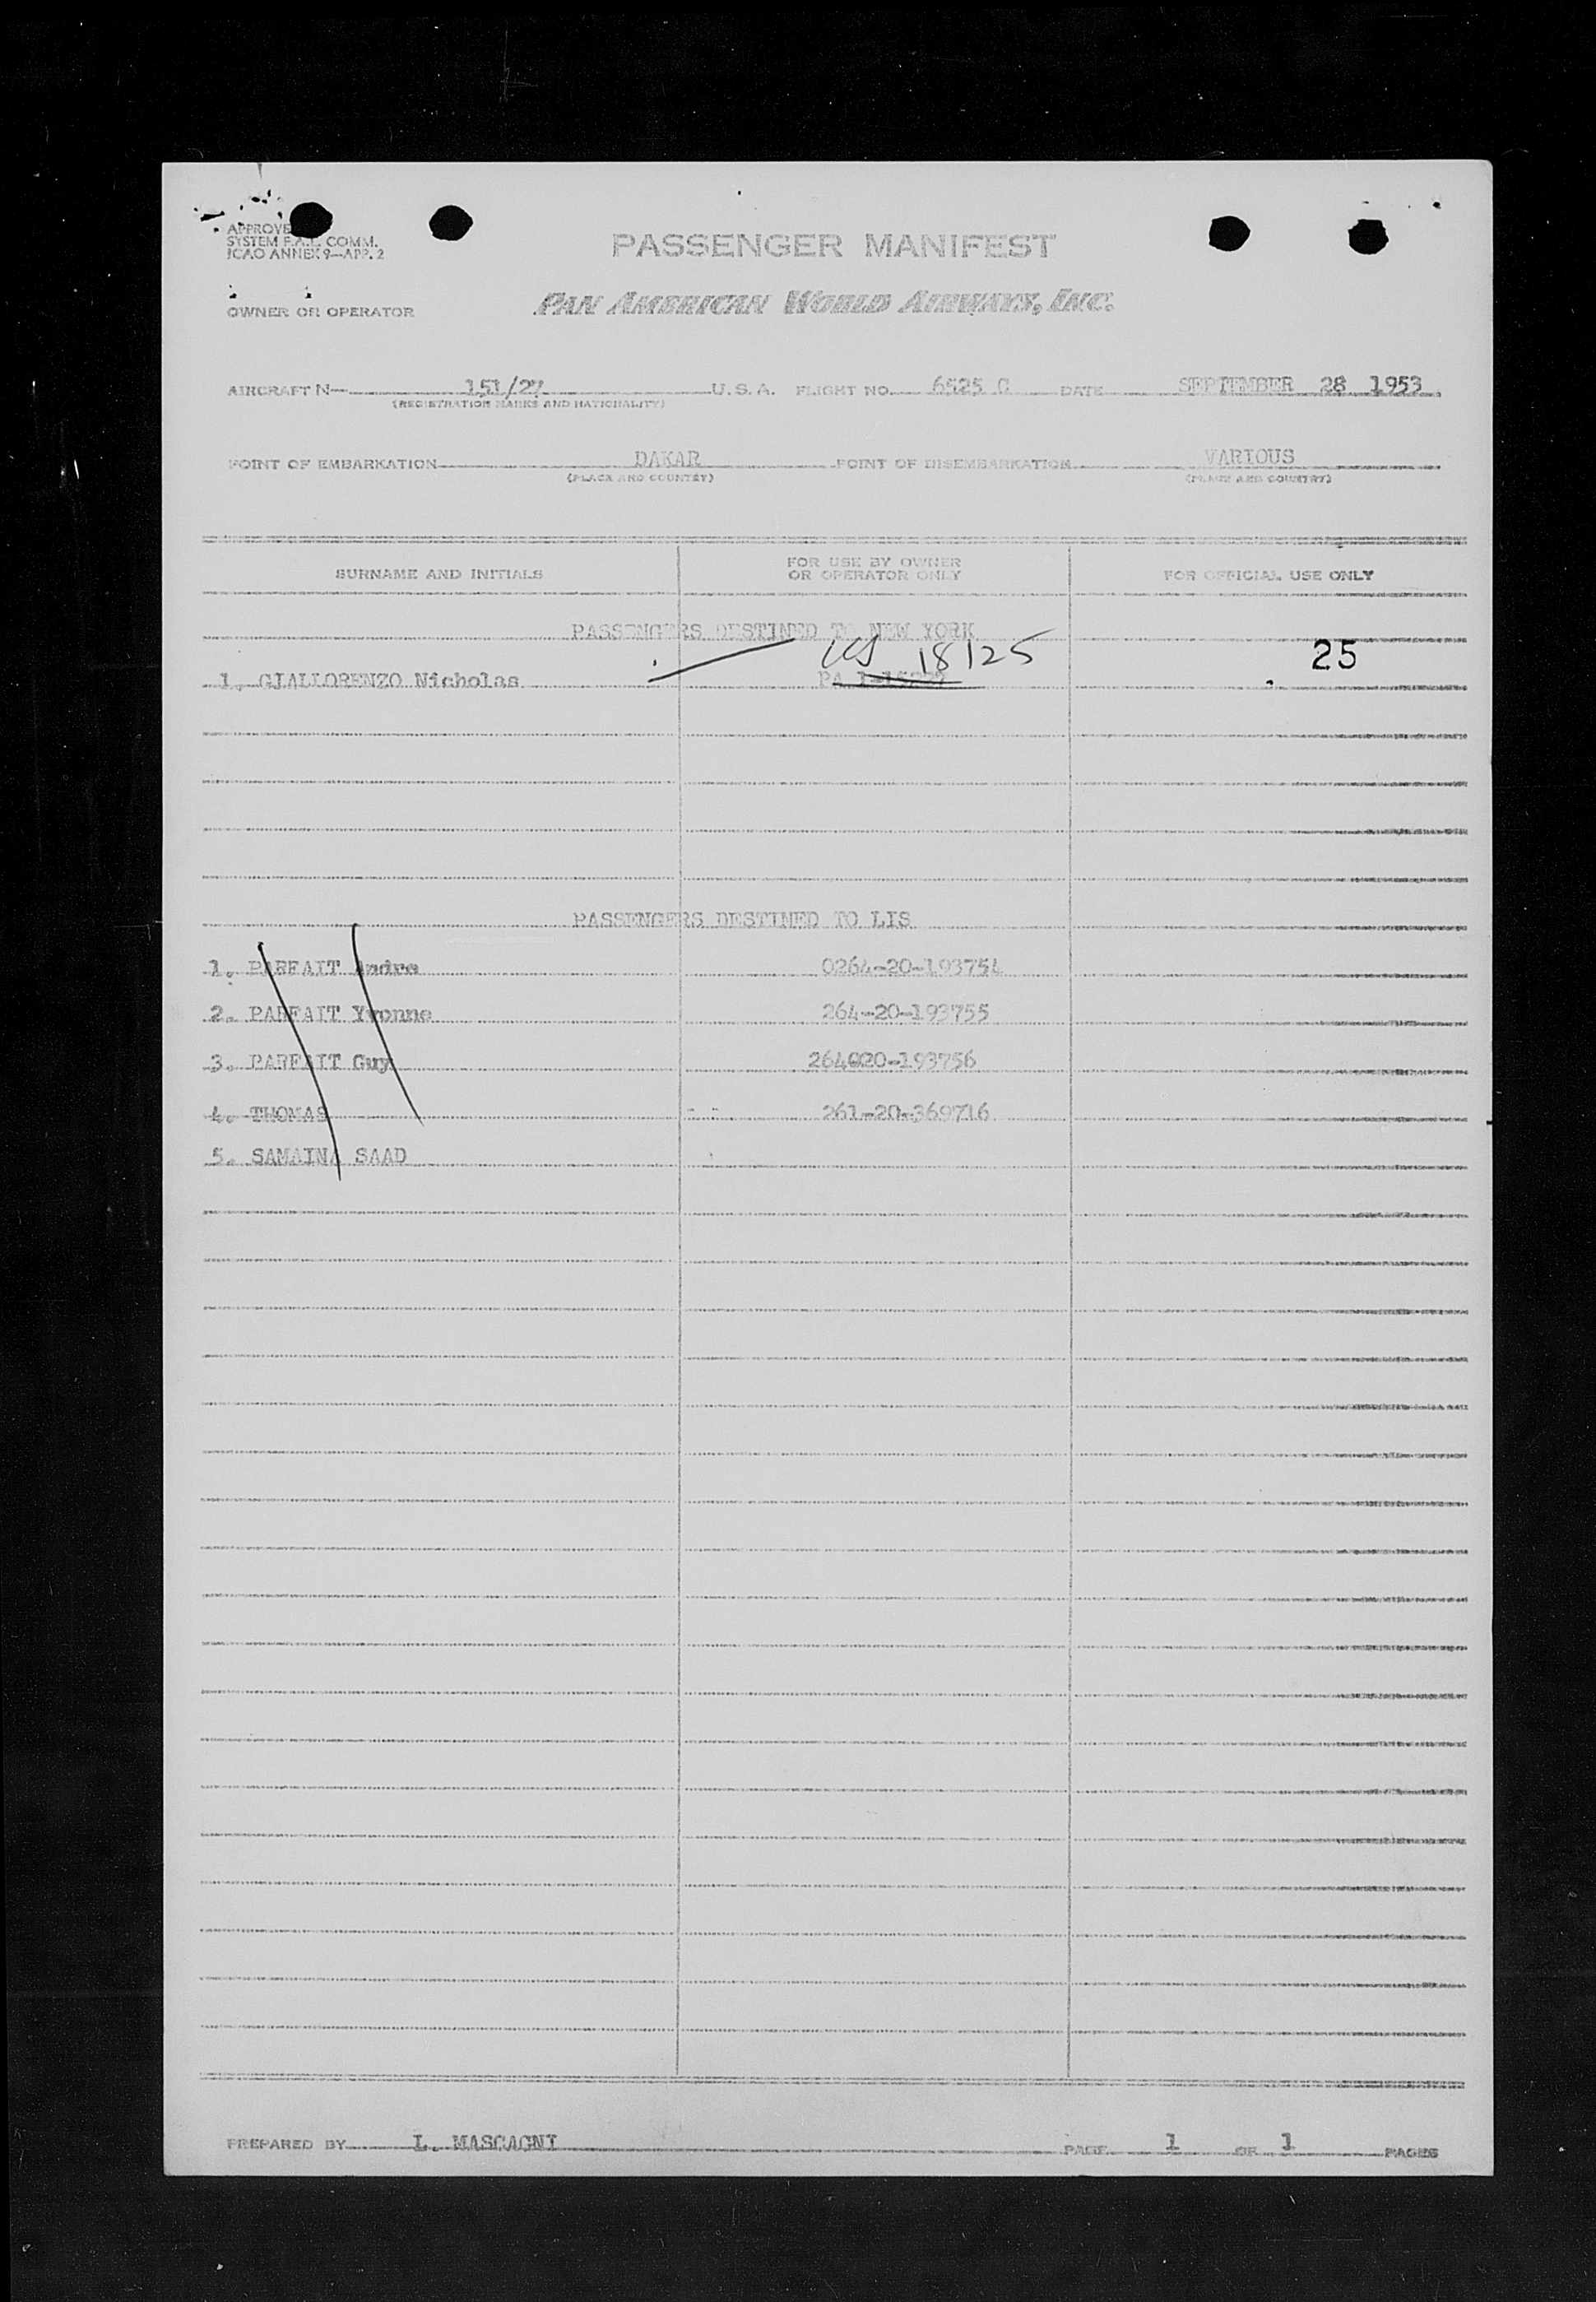 APPROVE
SYSTEM F.A.L. COMM.
ICAO ANNEX 9—APP. 2
PASSENGER MANIFEST
OWNER OR OPERATOR
PAN AMERICAN WORLD AIRWAYS, INC.
AIRCRAFT N— 151/27 U. S. A. FLIGHT NO. 6525 C DATE SEPTEMBER 28 1953
(REGISTRATION MARKS AND NATIONALITY)
POINT OF EMBARKATION DAKAR POINT OF DISEMBARKATION VARIOUS
(PLACE AND COUNTRY) (PLACE AND COUNTRY)
SURNAME AND INITIALS FOR USE BY OWNER OR OPERATOR ONLY FOR OFFICIAL USE ONLY
PASSENGERS DESTINED TO NEW YORK
18125 25
1. GIALLORENZO Nicholas PA
PASSENGERS DESTINED TO LIS
1. PARFAIT Andre 0264-20-193754
2. PARFAIT Yvonne 264-20-193755
3. PARFAIT Guy 264020-193756
4. THOMAS 261-20-369716
5. SAMAINA SAAD
PREPARED BY L. MASCAGNI PAGE 1 OF 1 PAGES